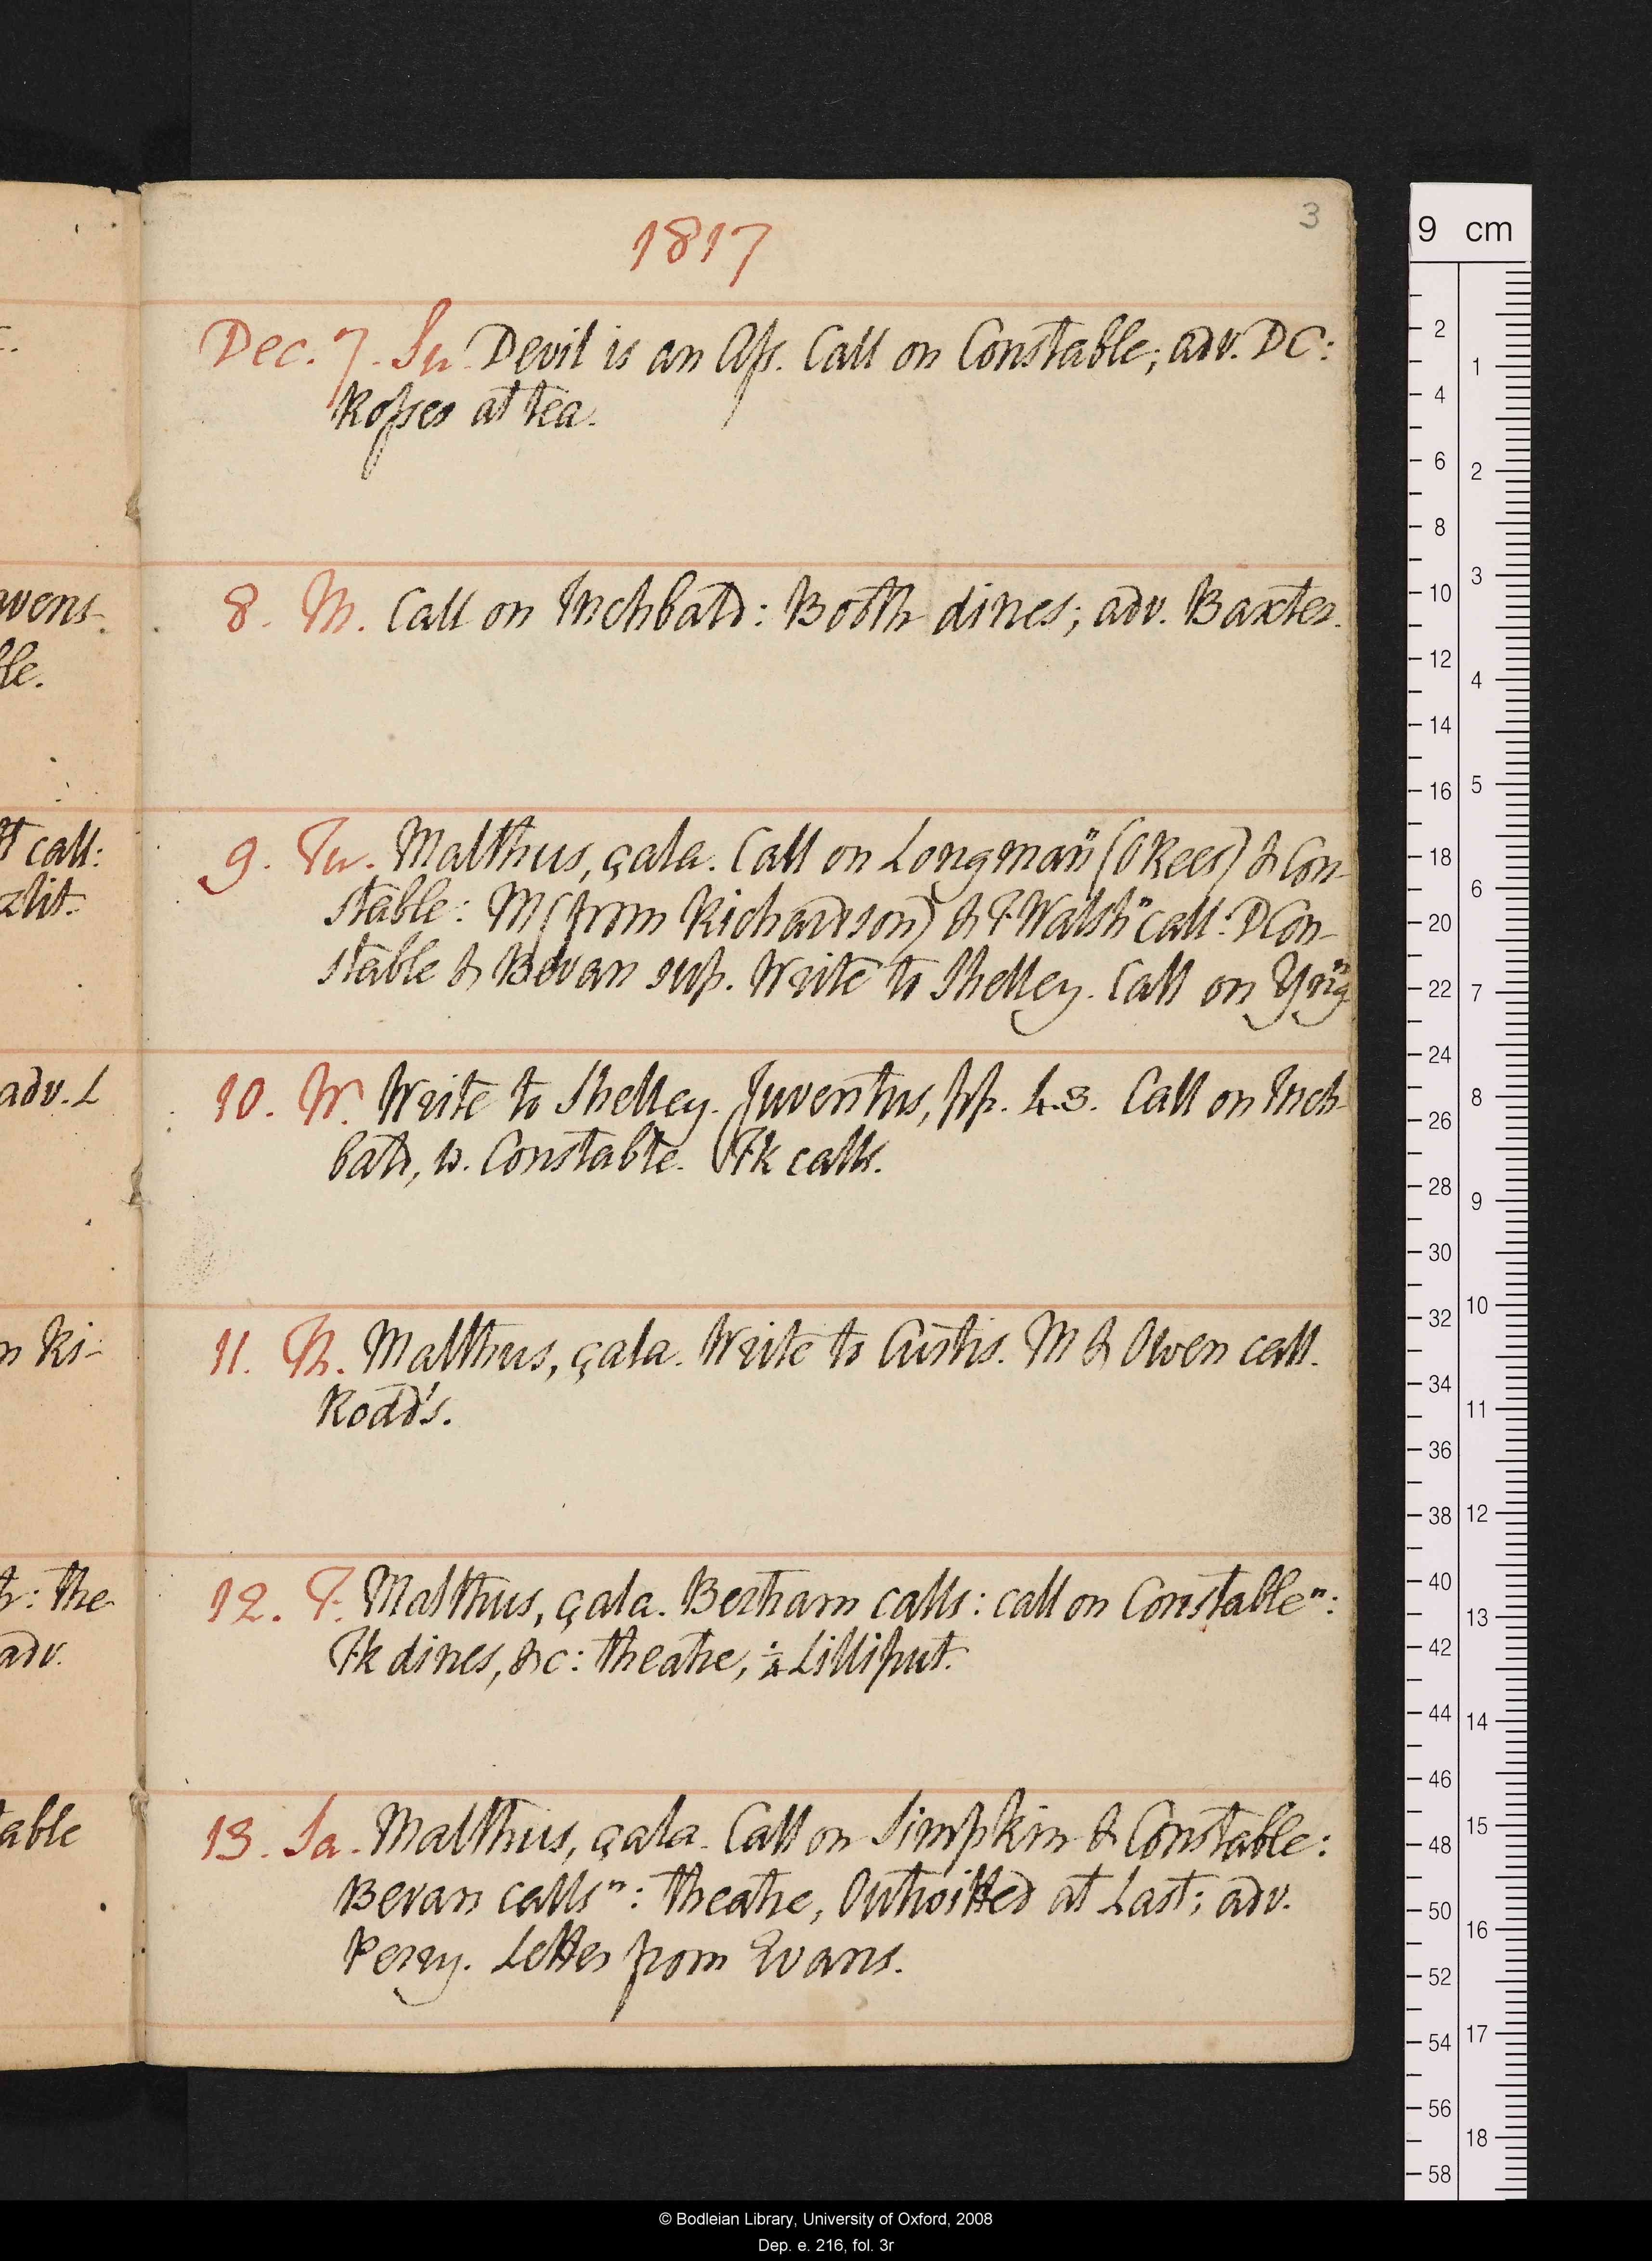 3
1817
Dec. 7. Su. Devil is an Aſs. Call on Constable; adv. DC:
Roſses at tea.
8. M. Call on Inchbald: Booth dines; adv. Baxter.
9. Tu. Malthus, çala. Call on Longmanⁿ (O Rees) & Con-
stable: M (from Richardson) & F. Walshⁿ call: D Con-
stable & Bevan sup. Write to Shelley. Call on Yngⁿ
10. W. Write to Shelley. Juventus, pp. 4.3. Call on Inch-
bald, w. Constable. Fk calls.
11. Th. Malthus, çala. Write to Curtis. M & Owen call.
Rodd's.
12. F. Malthus, çala. Bertram calls: call on Constableⁿ:
Fk dines, &c: theatre, ½ Lilliput.
13. Sa. Malthus, çala. Call on Simpkin & Constable:
Bevan callsⁿ: theatre, Outwitted at Last; adv.
Perry. Letter from Evans.
avens-
ble.
call:
zlit.
adv. L
n Ri-
: the
adv.
table
9 cm
2
4
6
8
10
12
14
16
18
20
22
24
26
28
30
32
34
36
38
40
42
44
46
48
50
52
54
56
58
1
2
3
4
5
6
7
8
9
10
11
12
13
14
15
16
17
18
© Bodleian Library, University of Oxford, 2008
Dep. e. 216, fol. 3r